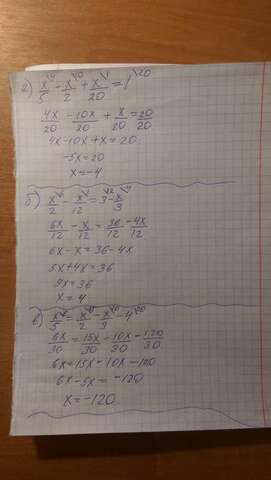 а) x/5\4 - x/2\10 + x/20\1 = 1\20
4x/20 - 10x/20 + x/20 = 20/20
4x-10x+x=20
-5x=20
x=-4
б) x/2\6 - x/12\1 = 3\12 - x/3\4
6x/12 - x/12 = 36/12 - 4x/12
6x-x=36-4x
5x+4x=36
9x=36
x=4
в) x/5\6 = x/2\15 - x/3\10 - 4\30
6x/30 = 15x/30 - 10x/30 - 120/30
6x=15x-10x-120
6x-5x=-120
x=-120